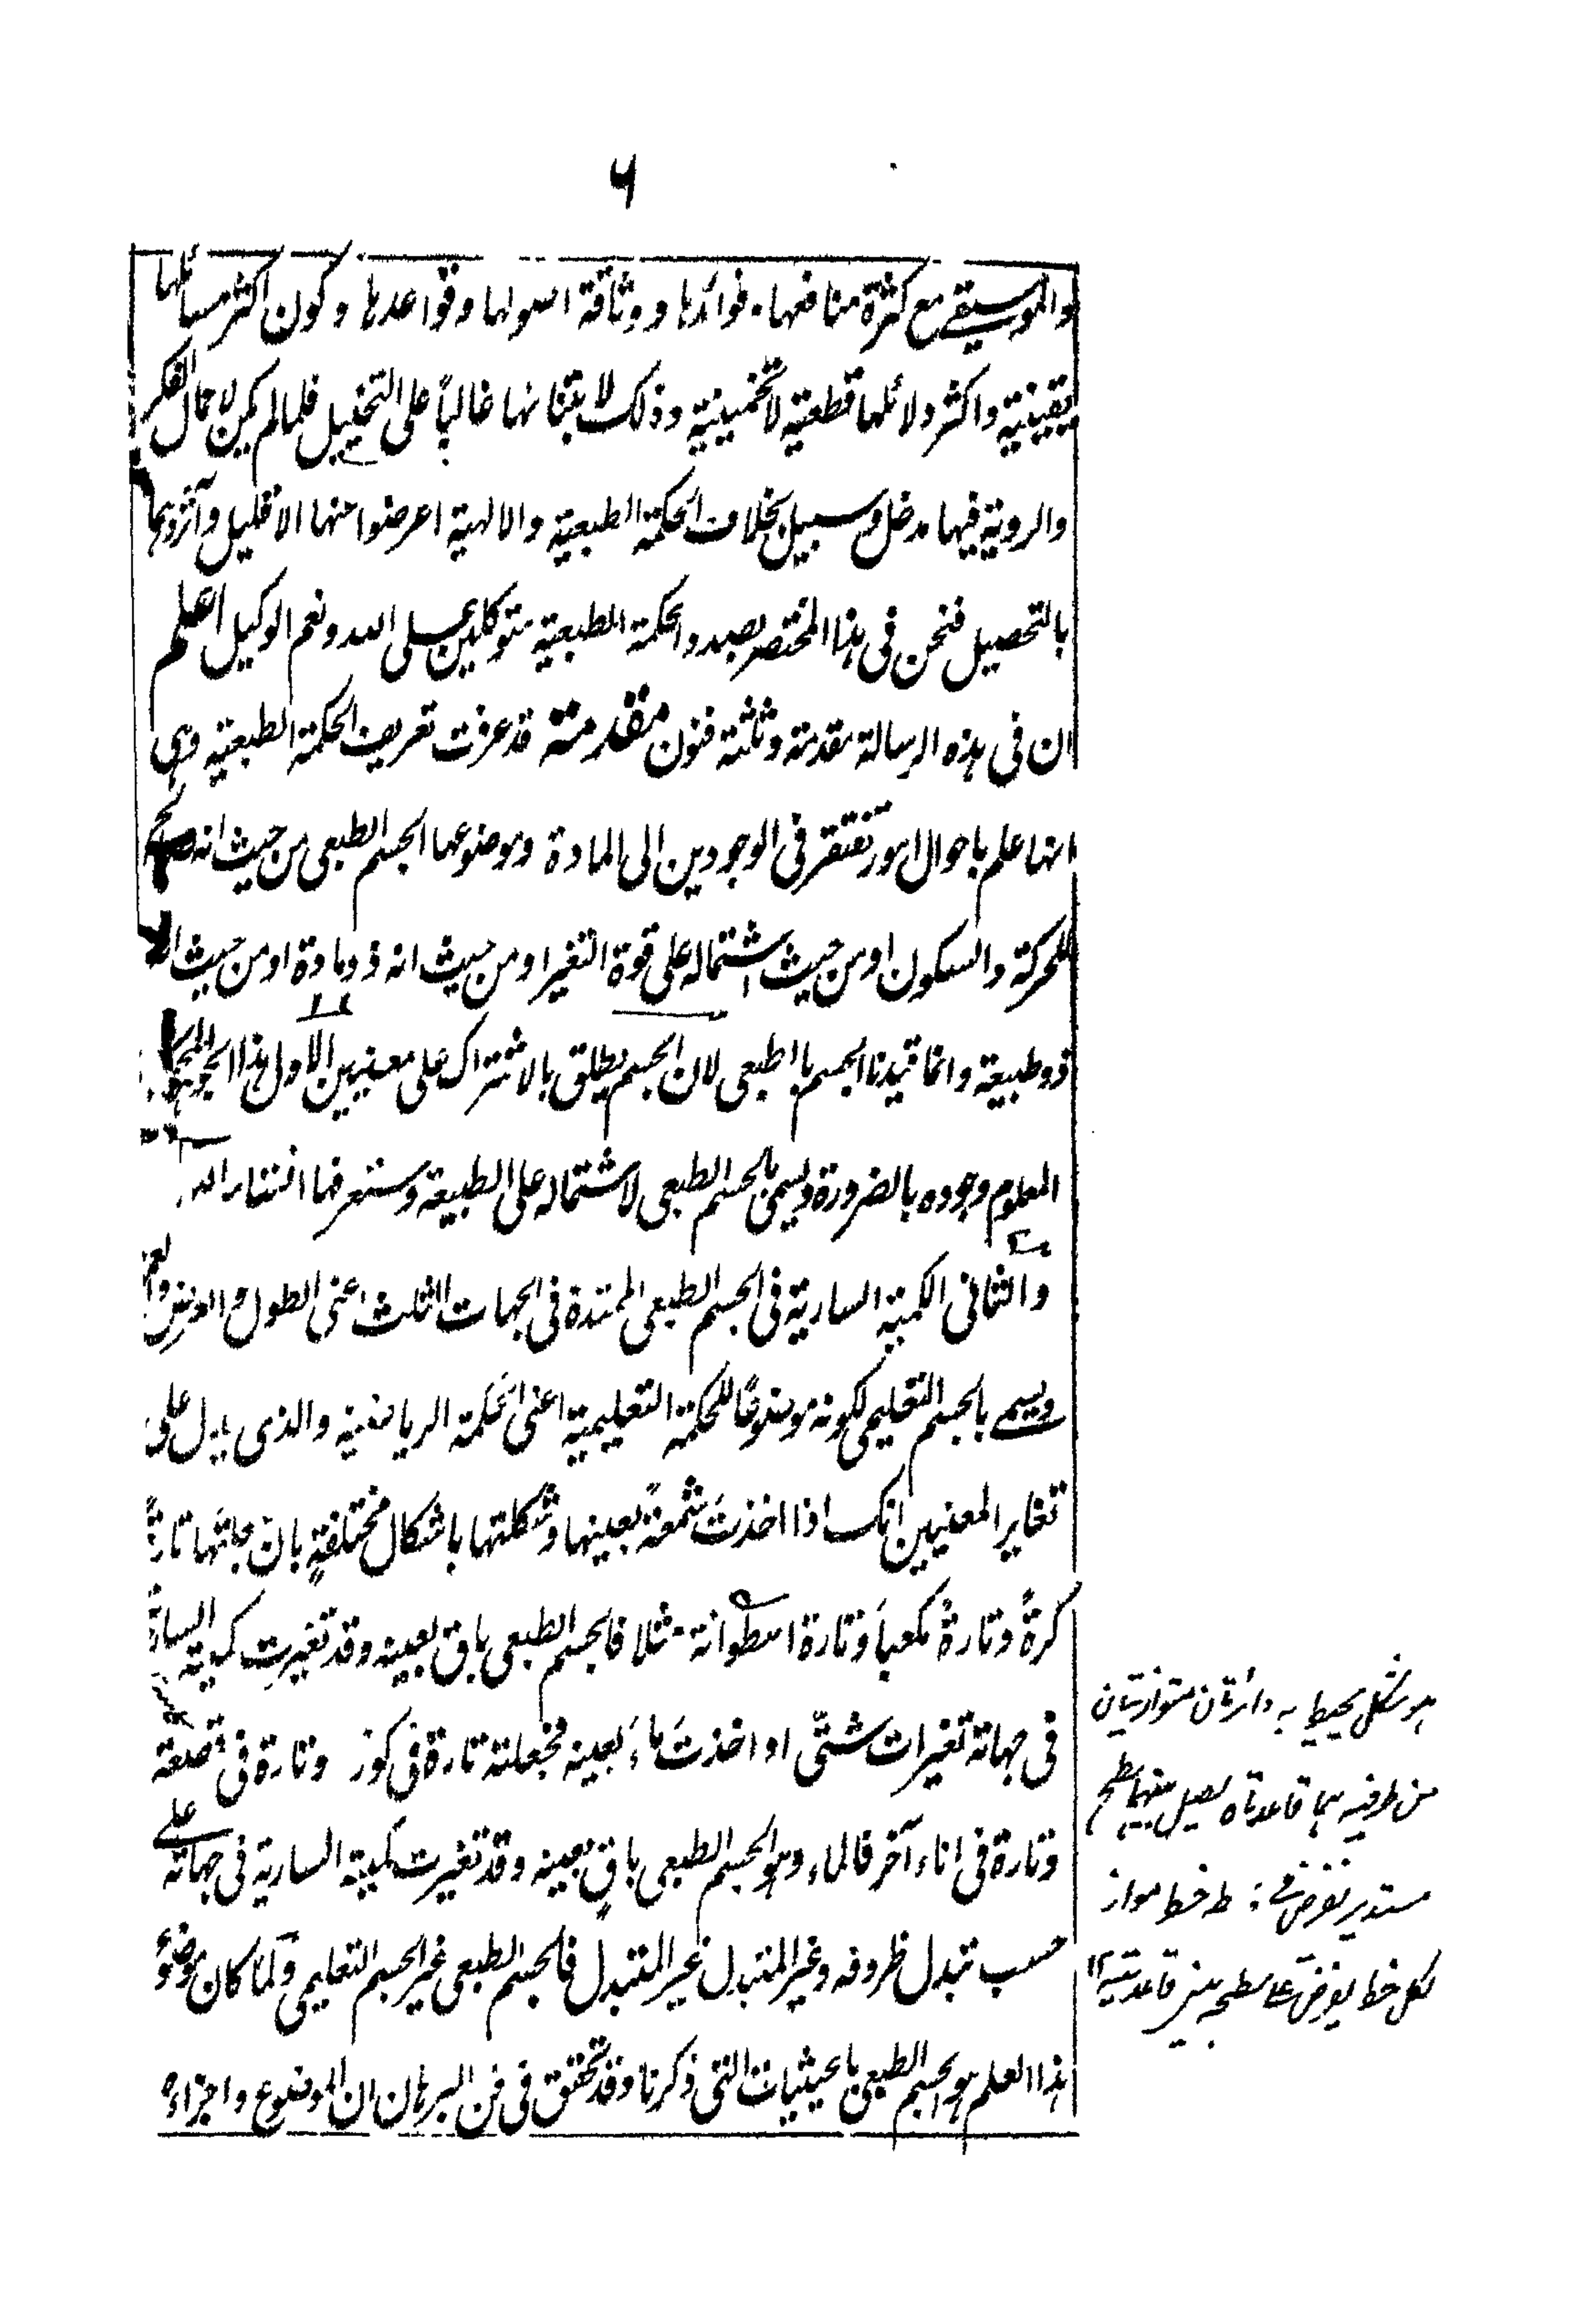 ۶
والموسیقے مع کثرة منافعها وفوائدها ووثاقة اصولها وقواعدها وکون اکثر مسائلها
یقینیة واکثر دلائلها قطعیة لا تخمینیة وذلک لابتنائها غالباً علی التخییل فلما لم یکن لاعمال الفکر
والرویة فیها مدخل وسبیل بخلاف الحکمة الطبعیة والالهیة اعرضوا عنها الا قلیل وآثروهما
بالتحصیل فنحن فی هذا المختصر بصدد الحکمة الطبعیة متوکلین علی الله ونعم الوکیل اعلم
ان فی هذه الرسالة مقدمة وثلثة فنون مقدمة قد عرفت تعریف الحکمة الطبعیة وهی
انها علم باحوال امور تفتقر فی الوجودین الی المادة وموضوعها الجسم الطبعی من حیث انه
للحرکة والسکون او من حیث اشتماله علی قوة التغیر او من حیث انه ذو مادة او من حیث انه
ذو طبیعة وانما قیدنا الجسم بالطبعی لان الجسم یطلق بالاشتراک علی معنیین الاول هذا الجوهر
المعلوم وجوده بالضرورة ویسمی بالجسم الطبعی لاشتماله علی الطبیعة وستعرفها انشاء الله
والثانی الکمیة الساریة فی الجسم الطبعی الممتدة فی الجهات الثلث اعنی الطول والعرض والعمق
ویسمے بالجسم التعلیمی لکونه موضوعًا للحکمة التعلیمیة اعنی الحکمة الریاضیة والذی یدل علی
تغایر المعنیین انک اذا اخذتَ شمعةً بعینها وشکلتها باشکال مختلفةٍ بان جعلتَها تارةً
کرةً وتارةً مکعباً وتارة اسطوانة مثلا فالجسم الطبعی باق بعینه وقد تغیرت کمیته الساریة
فی جهاته تغیرات شتّی او اخذتَ ماءً بعینه فجعلته تارة فی کوز وتارة فی قصعة
وتارة فی اناء آخر فالماء وهو الجسم الطبعی باقٍ بعینه وقد تغیرت کمیته الساریة فی جهاته علے
حسب تبدل ظروفه وغیر المتبدل غیر المتبدل فالجسم الطبعی غیر الجسم التعلیمی ولما کان موضوع
هذا العلم هو الجسم الطبعی بالحیثیات التی ذکرنا وقد تحقق فی فن البرهان ان الموضوع واجزاءه
هو شکل یحیط به دائرتان متوازیتان
من طرفیه هما قاعدتاه یصل بینهما سطح
مستدیر یفرض فی خط مواز
لکل خط یفرض علے سطحه بین قاعدتیه ۱۲